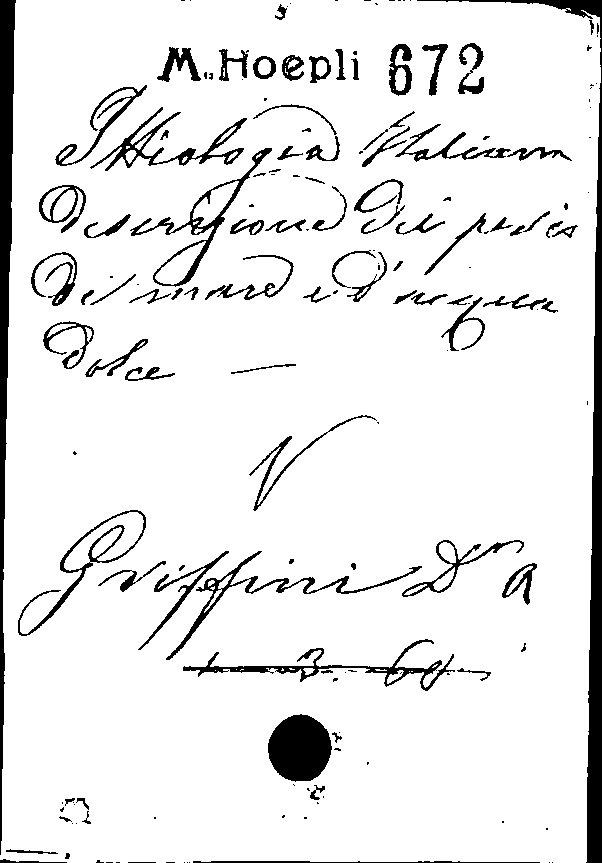 M. Hoepli 672
Ittiologia Italiana
descrizione dei pesci
di mare e d'acqua
dolce —
V
Griffini Dr A